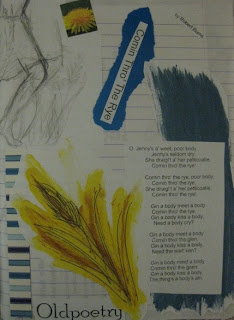 by Robert Burns
Comin Thro' The Rye
O, Jenny's a' weet, poor body,
Jenny's seldom dry:
She draigl't a' her petticoatie,
Comin thro' the rye!
Comin thro' the rye, poor body,
Comin thro' the rye,
She draigl't a' her petticoatie,
Comin thro' the rye!
Gin a body meet a body
Comin thro' the rye,
Gin a body kiss a body,
Need a body cry?
Gin a body meet a body
Comin thro' the glen,
Gin a body kiss a body,
Need the warl' ken?
Gin a body meet a body
Comin thro' the grain;
Gin a body kiss a body,
The thing's a body's ain.
Oldpoetry